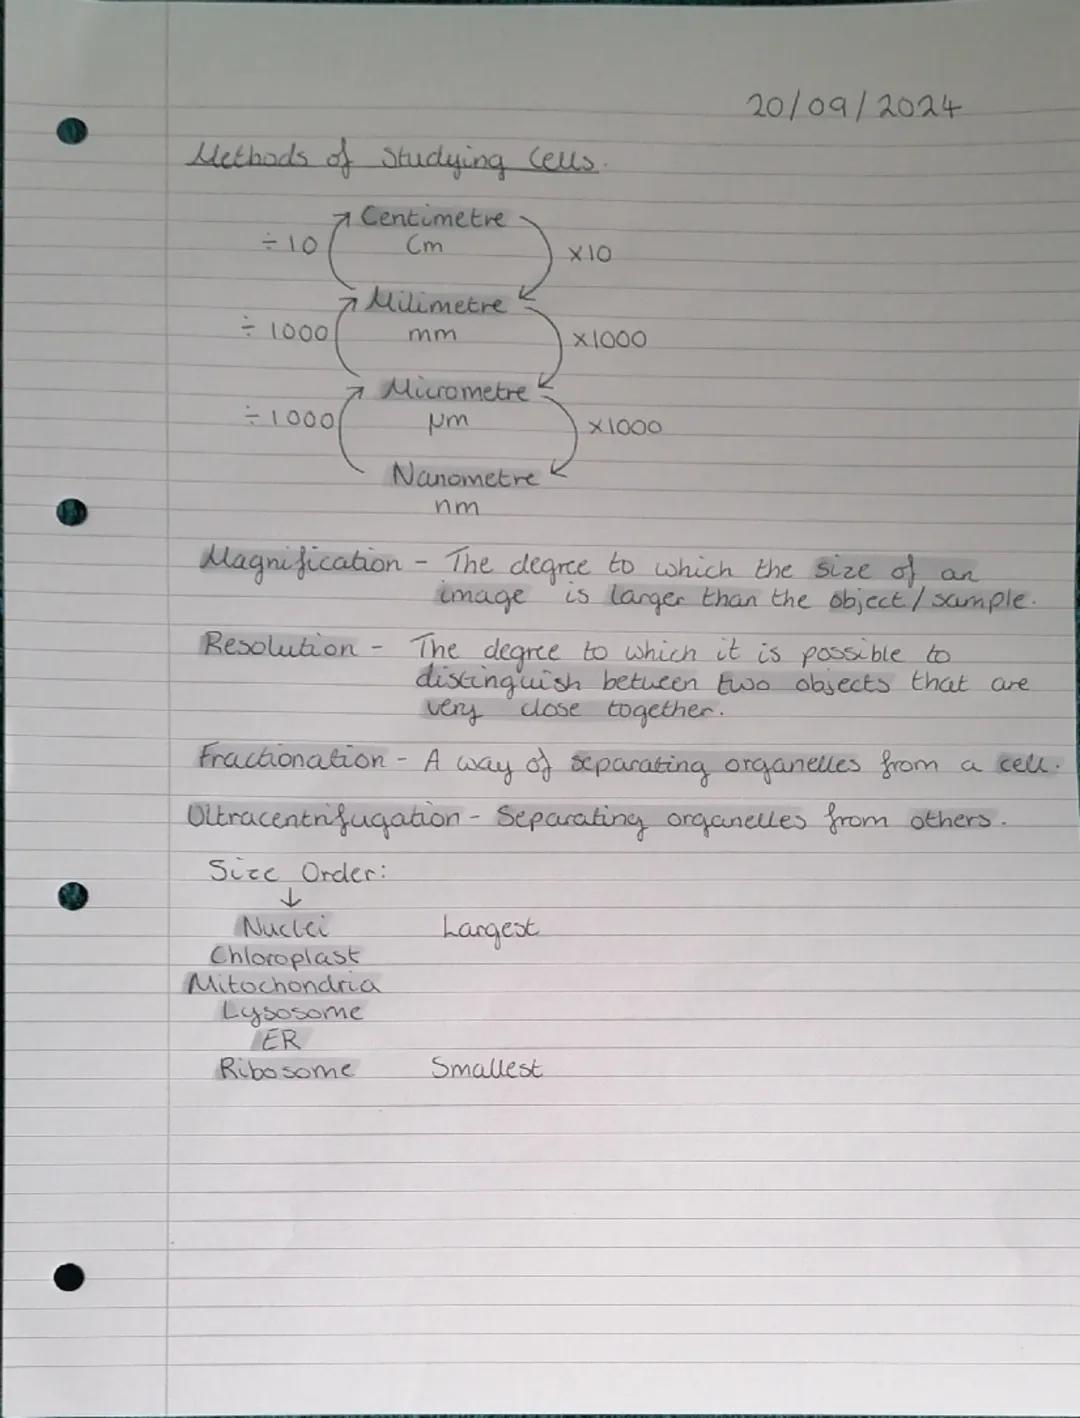 20/09/2024
Methods of Studying Cells.
Centimetre
÷10 Cm ×10
Milimetre
÷ 1000 mm ×1000
Micrometre
÷1000 μm ×1000
Nanometre
nm
Magnification - The degree to which the size of an
image is larger than the object/sample.
Resolution - The degree to which it is possible to
distinguish between two objects that are
very close together.
Fractionation - A way of separating organelles from a cell.
Ultracentrifugation - Separating organelles from others.
Size Order:
↓
Nuclei Largest
Chloroplast
Mitochondria
Lysosome
ER
Ribosome Smallest